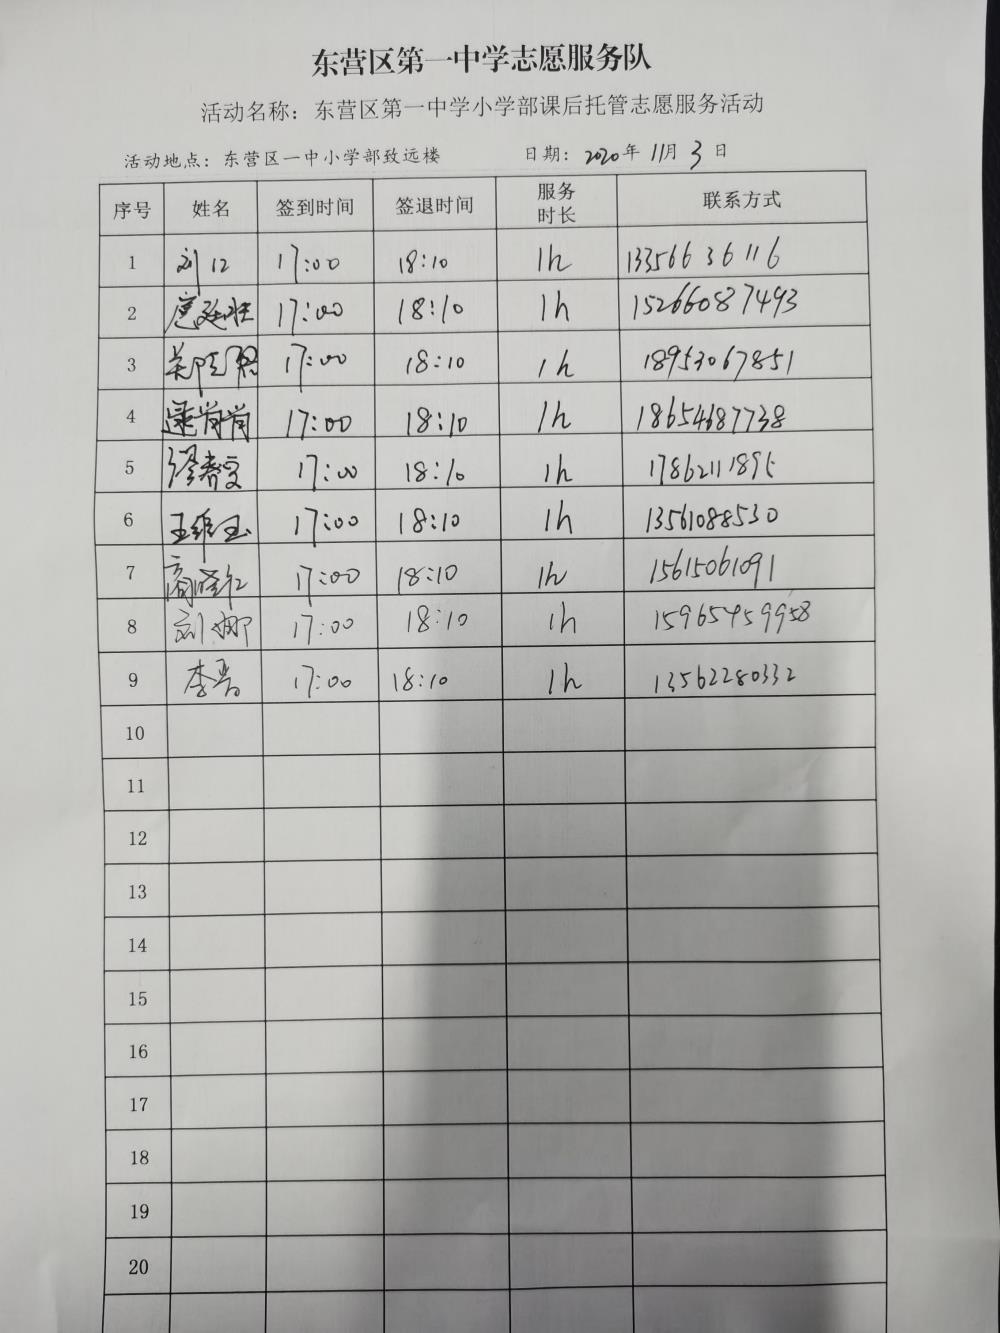 东营区第一中学志愿服务队
活动名称：东营区第一中学小学部课后托管志愿服务活动
活动地点：东营区一中小学部致远楼 日期：2020年 11月 3 日
序号 姓名 签到时间 签退时间 服务时长 联系方式
1 刘 17:00 18:10 1h 13356636116
2 17:00 18:10 1h 15266087493
3 17:00 18:10 1h 18953067851
4 肖肖 17:00 18:10 1h 18654687738
5 17:00 18:10 1h 17862111895
6 王维玉 17:00 18:10 1h 13561088530
7 17:00 18:10 1h 15615061091
8 刘娜 17:00 18:10 1h 15965459958
9 李 17:00 18:10 1h 13562280332
10
11
12
13
14
15
16
17
18
19
20